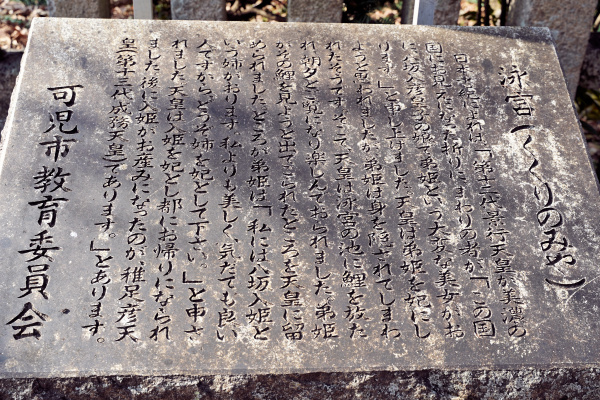 泳宮(くくりのみや)
日本書紀によれば、「第十二代景行天皇が美濃の
国においでになった折りに、まわりの者が、「この国
に八坂入彦皇子の姫で弟姫という大変な美女がお
ります。」と申し上げました。天皇は弟姫を妃にし
ようと思われましたが、弟姫は身を隠されてしまわ
れたそうです。そこで、天皇は泳宮の池に鯉を放た
れ、朝夕ご覧になり楽しんでおられました。弟姫
がその鯉を見ようと出てこられたところを天皇に留
められました。ところが弟姫は、「私には八坂入姫と
いう姉がおります。私よりも美しく、気だても良い
人ですから、どうぞ姉を妃として下さい。」と申さ
れました。天皇は入姫を妃とし都にお帰りになられ
ました。後に入姫がお産みになったのが、稚足彦天
皇(第十三代成務天皇)であります。」とあります。
可児市教育委員会